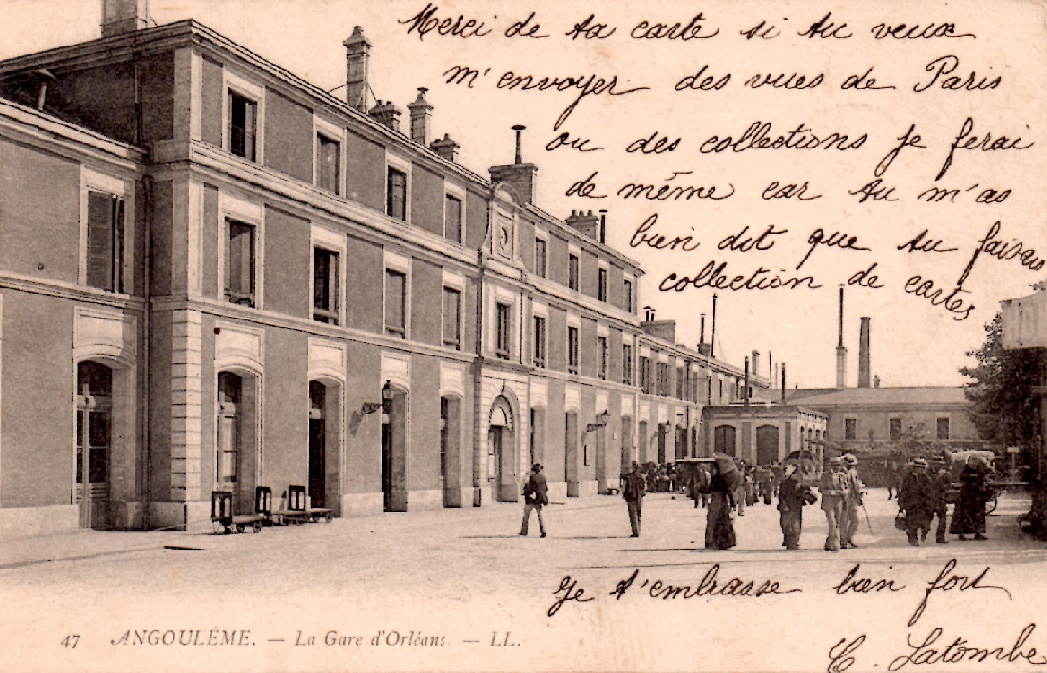 Merci de ta carte si tu veux
m'envoyer des vues de Paris
ou des collections je ferai
de même car tu m'as
bien dit que tu faisais
collection de cartes
Je t'embrasse bien fort
C. Latombe
47 ANGOULÊME. — La Gare d'Orléans — LL.